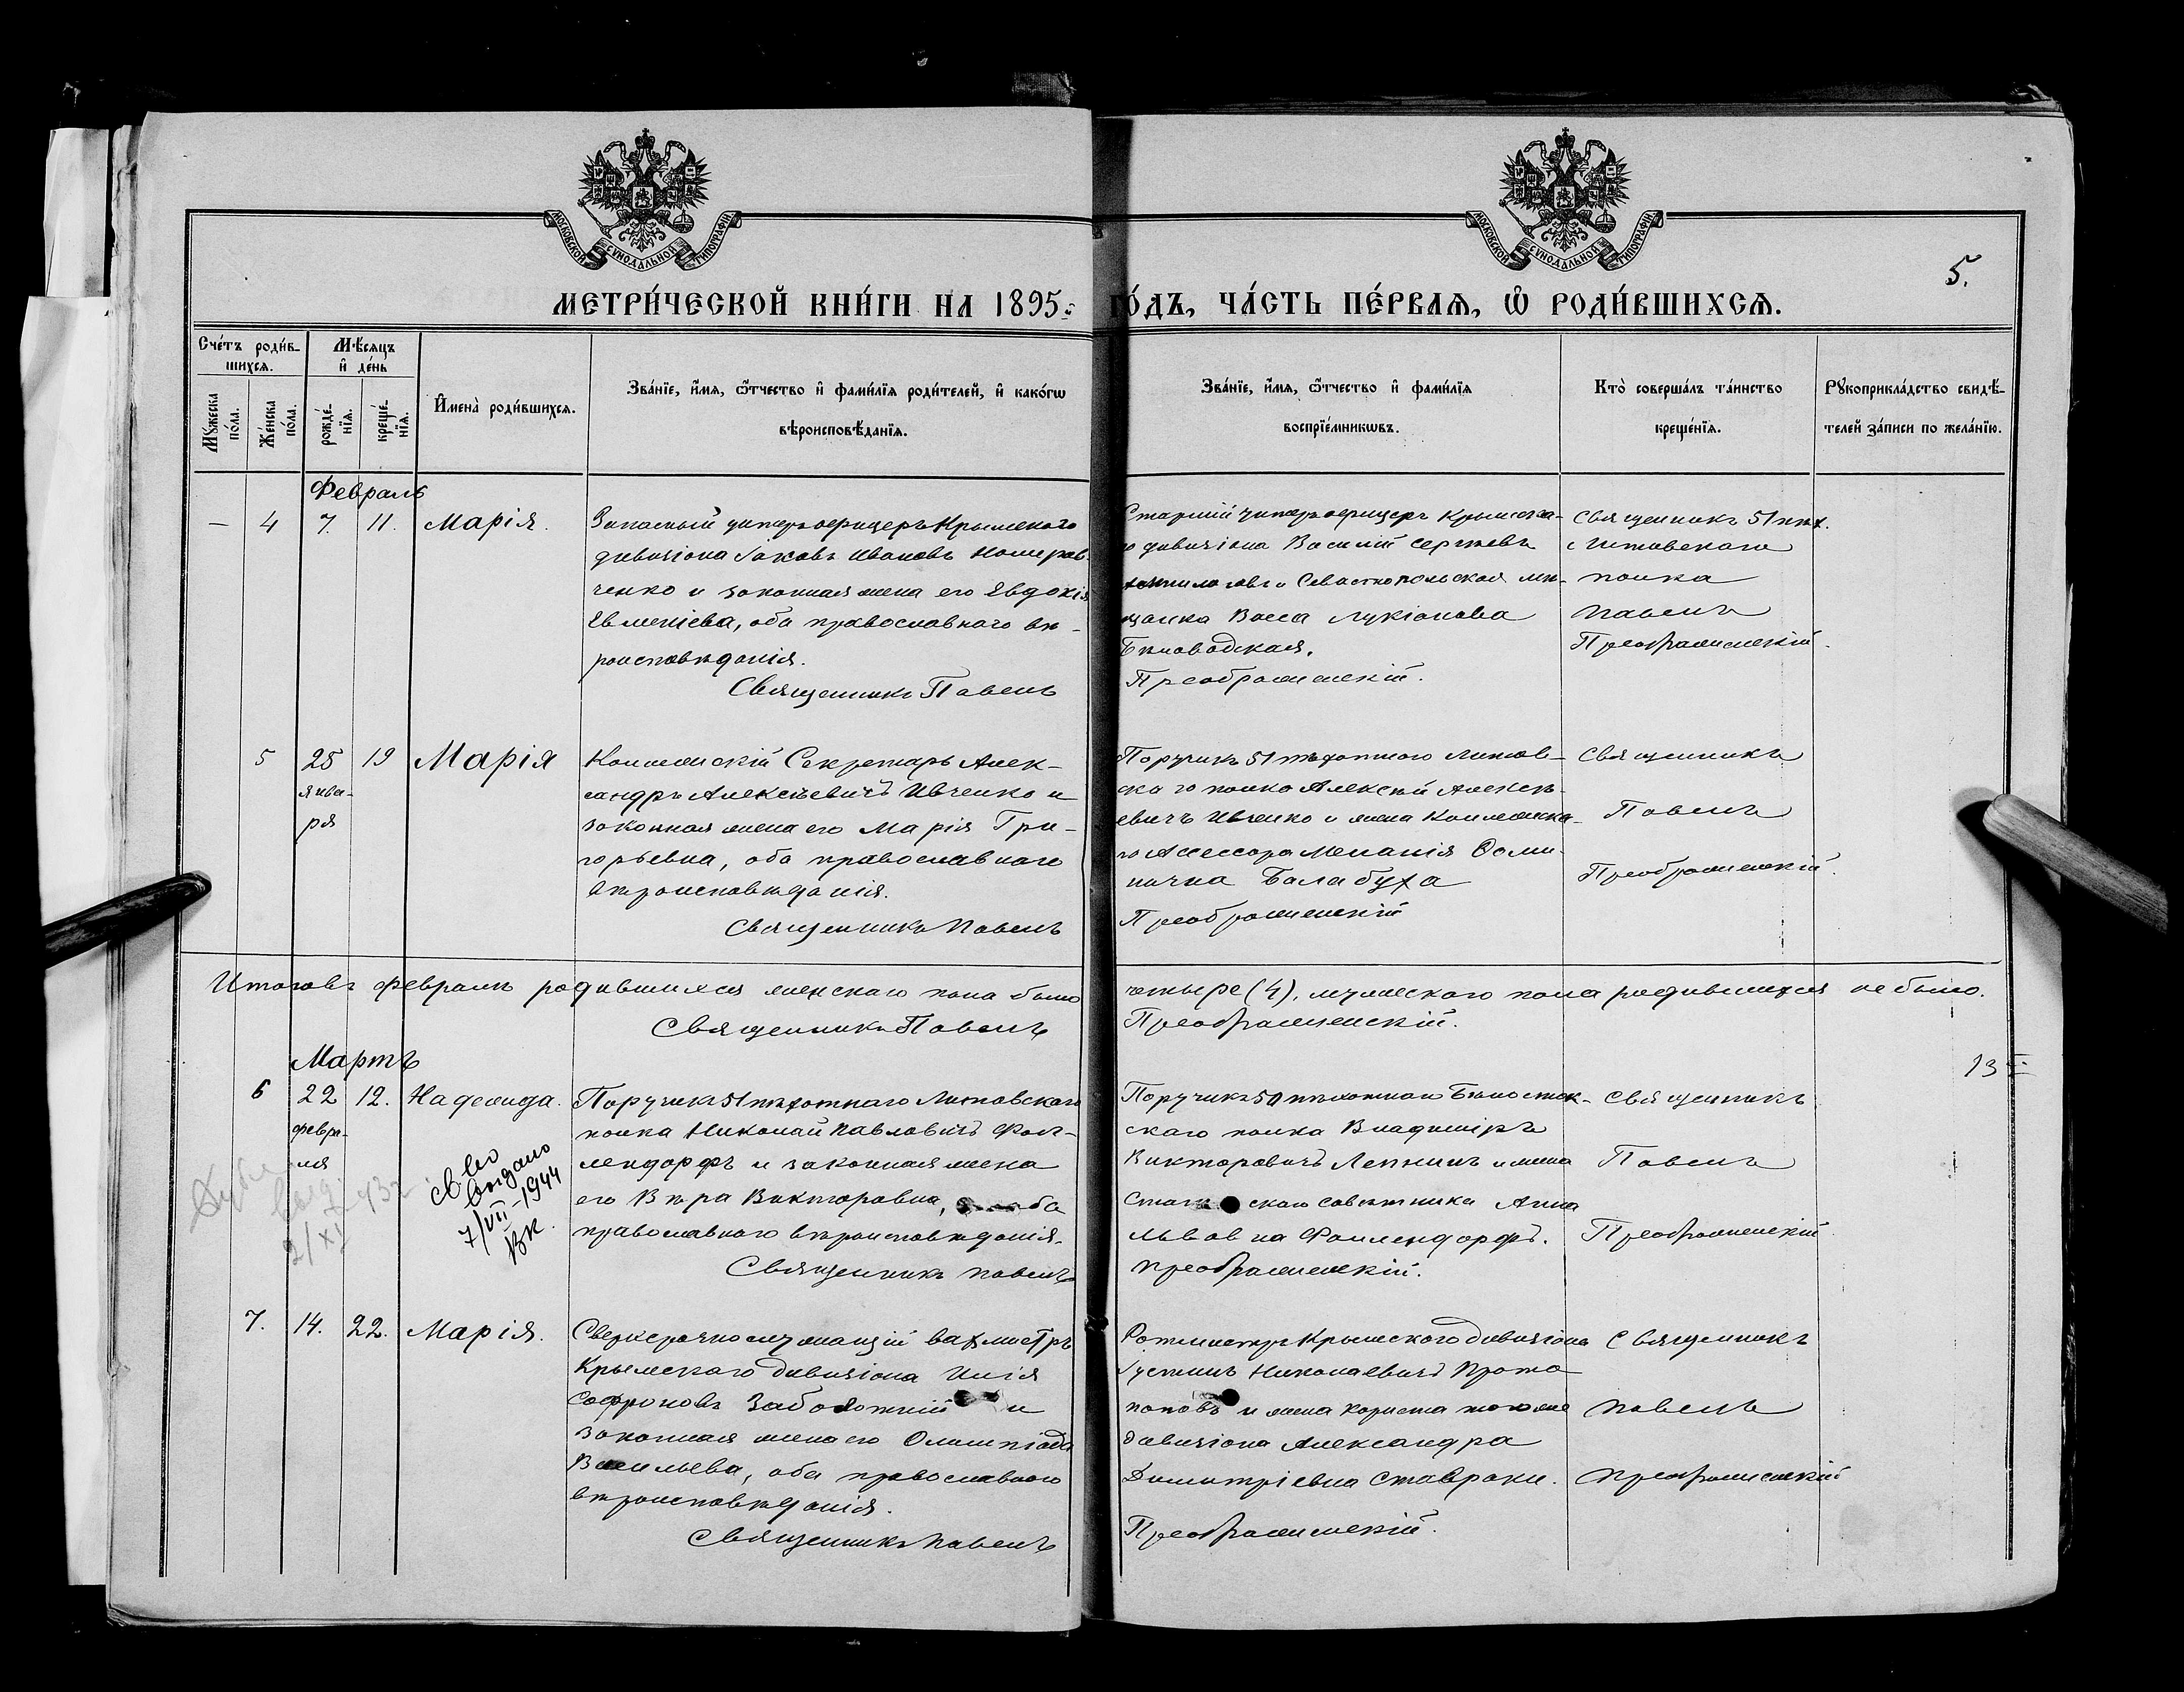 МОСКОВСКОЙ СѴНОДАЛЬНОЙ ТИПОГРАФІИ
МОСКОВСКОЙ СѴНОДАЛЬНОЙ ТИПОГРАФІИ
5.
МЕТРИ́ЧЕСКОЙ КНИ́ГИ НА 1895
ГО́ДЪ, ЧА́СТЬ ПЕ́РВАЯ, Ѡ РОДИ́ВШИХСЯ.
Сче́тъ роди́в-
шихся.
Мꙋ́жеска
по́ла.
Же́нска
по́ла.
Мѣ́сяцъ
и҆ де́нь
рожде́-
нїя.
креще́-
нїя.
И҆мена̀ роди́вшихся.
Зва́нїе, и҆́мя, ѻ҆́тчество и҆ фами́лїя роди́телей, и҆ како́гѡ
вѣроисповѣ́данїя.
Зва́нїе, и҆́мя, ѻ҆́тчество и҆ фами́лїя
воспрїе́мникѡвъ.
Кто̀ соверша́лъ та́инство
креще́нїя.
Рꙋкоприкла́дство свидѣ́-
телей за́писи по жела́нїю.
Февраль
— 4 7. 11. Марія.
Запасный унтеръ офицеръ Крымскаго
дивизіона Іаковъ Ивановъ
ченко и законная жена его Евдокія
Евменіева, оба православнаго вѣ-
роисповѣданія.
Священникъ Павелъ
Старшій унтеръ офицеръ Крымска-
го дивизіона Василій Сергѣевъ
и Севастопольская мѣ-
щанка Васса Лукіанова
Бѣловодская.
Преображенскій.
Священникъ 51 пѣх.
Литовскаго
полка
Павелъ
Преображенскій.
5 25 19 Марія
янва-
ря
Коллежскій Секретарь Алек-
сандръ Алексѣевичъ Ивченко и
законная жена его Марія Гри-
горьевна, оба православнаго
вѣроисповѣданія.
Священникъ Павелъ
Поручикъ 51 пѣхотнаго Литов-
скаго полка Алексѣй Алексѣ-
евичъ Ивченко и жена Коллежска-
го Ассессора Меланія Осип-
Балабуха
Преображенскій
Священникъ
Павелъ
Преображенскій.
Итого въ февралѣ родившихся женскаго пола было
четыре (4), мужескаго пола родившихся не было.
Священникъ Павелъ
Преображенскій.
Мартъ
13
6 22 12. Надежда.
февра-
ля
Св-во
выдано
7/VII-1944
ВК.
Поручикъ 51 пѣхотнаго Литовскаго
полка Николай Павловичъ Фол-
лендорфъ и законная жена
его Вѣра Викторовна, оба
православнаго вѣроисповѣданія.
Священникъ Павелъ
Поручикъ 50 пѣхотнаго Бѣлосток-
скаго полка Владиміръ
Викторовичъ Лепнинъ и жена
скаго совѣтника Анна
Львовна Фоллендорфъ.
Преображенскій.
Священникъ
Павелъ
Преображенскій
7. 14. 22. Марія.
Сверхсрочнослужащій вахмистръ
Крымскаго дивизіона Илія
Софроновъ Заболотній и
законная жена его Олимпіада
Васильева, оба православнаго
вѣроисповѣданія.
Священникъ Павелъ
Ротмистръ Крымскаго дивизіона
Іустинъ Николаевичъ Прото
поповъ и жена корнета того же
дивизіона Александра
Димитріевна Ставраки.
Преображенскій.
Священникъ
Павелъ
Преображенскій